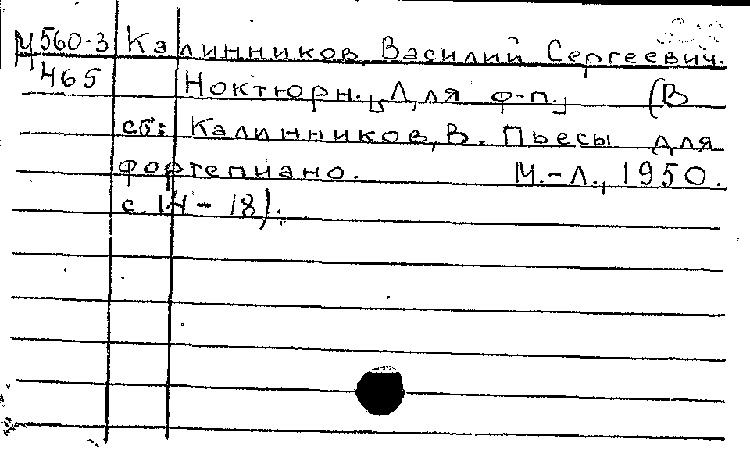 М560-3 Калинников, Василий Сергеевич.
465 Ноктюрн. [Для ф-п.] (В
сб: Калинников, В. Пьесы для
фортепиано. М.-Л., 1950.
с. 14-18).